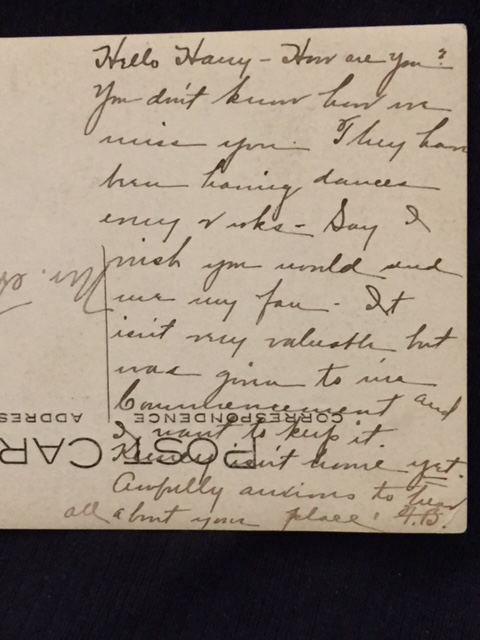 Hello Harry - How are you?
You don't know how we
miss you. They have
been having dances
every 2 wks - Say I
wish you would send
me my fan - It
isn't very valuable but
was given to me
Commencement and
I want to keep it.
isn't home yet.
Awfully anxious to hear
all about your place. H.B.
CORRESPONDENCE
ADDRESS
POST CAR
Mr.